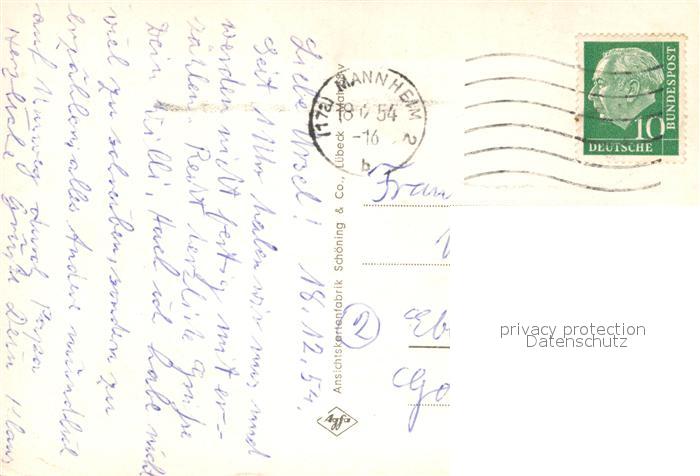 Liebe 18.12.54.
Seit 1 Uhr haben wir uns und
werden nicht fertig mit er-
zählen. Recht herzliche Grüße
Dein Willi. Hast und habe nicht
viel zu schreiben, sondern zu
erzählen, alles Andere mündlich
auf durch Papa
Herzliche Grüße Dein Klaus
Ansichtskartenfabrik Schöning & Co., Lübeck
Agfa
(17a) MANNHEIM 2
18 12 54
-16
b
10
DEUTSCHE
BUNDESPOST
Frau
2
privacy protection
Datenschutz